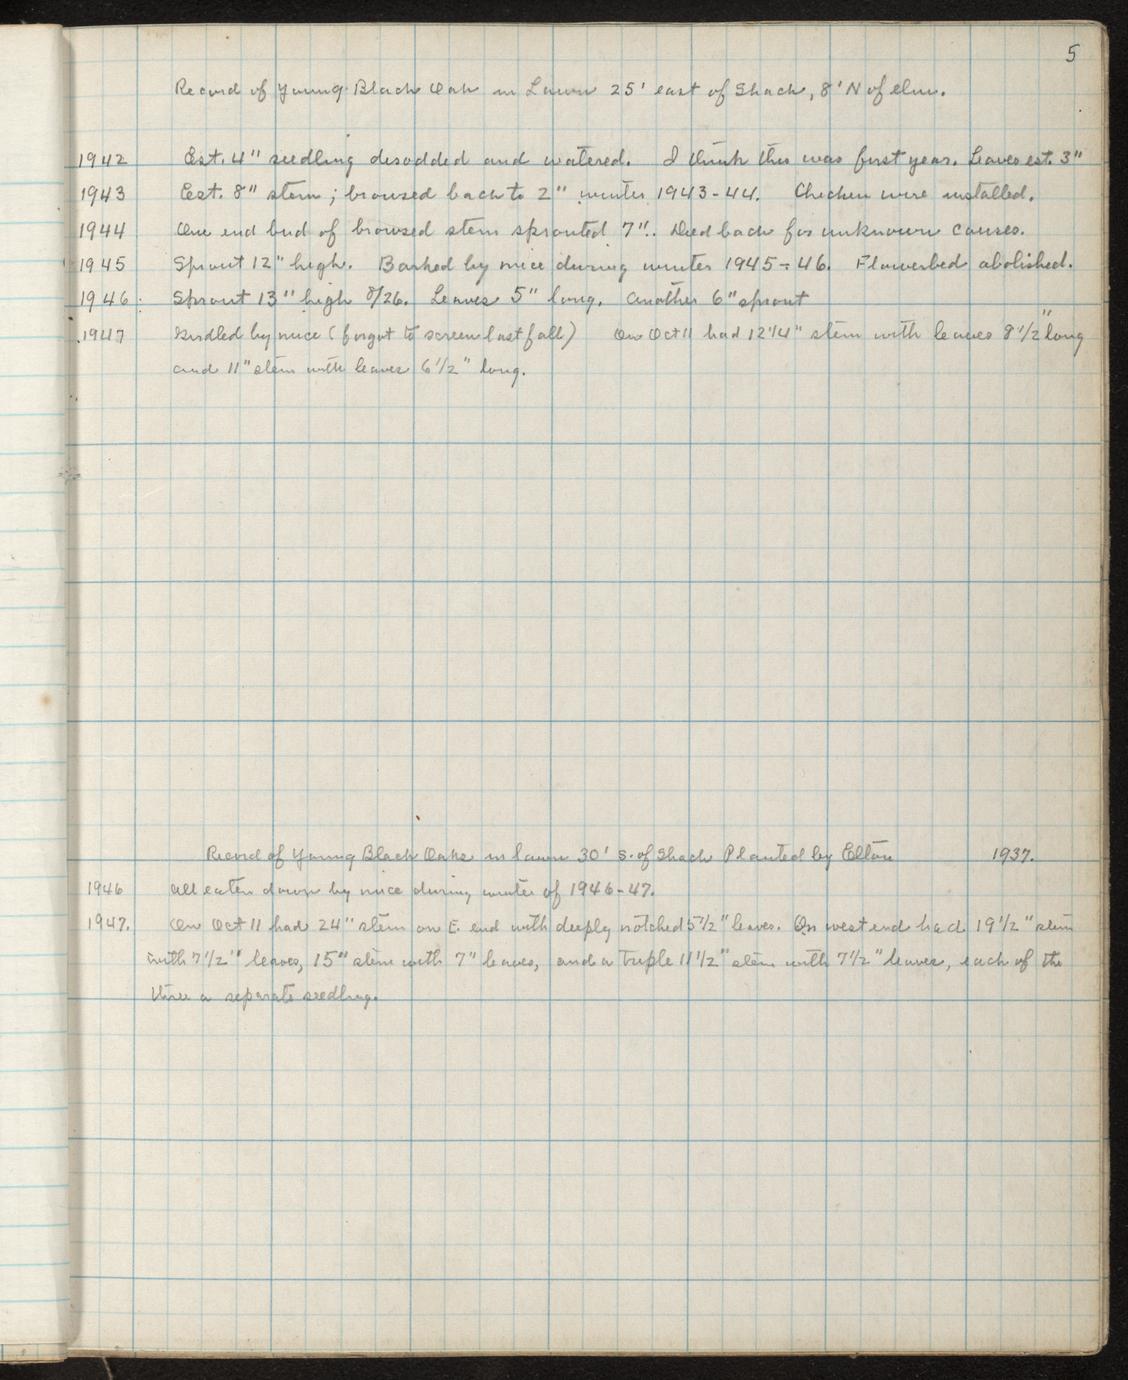 5
Record of Young Black Oak in Lawn 25' east of Shack, 8' N of elm.
1942 Est. 4" seedling desodded and watered. I think this was first year. Leaves est. 3"
1943 Est. 8" stem; browsed back to 2" winter 1943-44. Chicken wire installed.
1944 One end bud of browsed stem sprouted 7". Died back for unknown causes.
1945 Sprout 12" high. Barked by mice during winter 1945-46. Flowerbed abolished.
1946 Sprout 13" high 8/26. Leaves 5" long. Another 6" sprout
1947 Girdled by mice (forgot to screen last fall) On Oct 11 had 12 1/4" stem with leaves 8 1/2" long
and 11" stem with leaves 6 1/2" long.
Record of Young Black Oaks in lawn 30' S. of Shack Planted by Elton 1937.
1946 All eaten down by mice during winter of 1946-47.
1947. On Oct 11 had 24" stem on E. end with deeply notched 5 1/2" leaves. On west end had 19 1/2" stem
with 7 1/2" leaves, 15" stem with 7" leaves, and a triple 11 1/2" stem with 7 1/2" leaves, each of the
three a separate seedling.